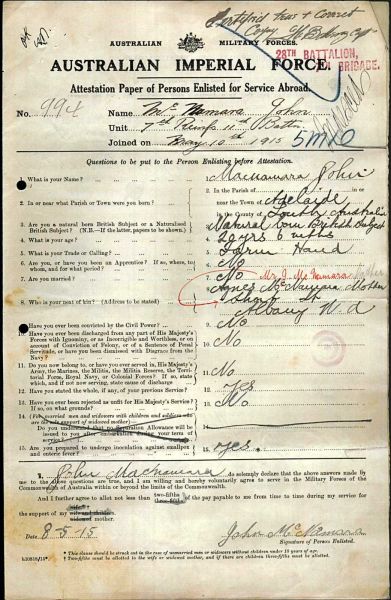 Certified true & Correct
Copy
AUSTRALIAN MILITARY FORCES.
28TH BATTALION,
BRIGADE.
AUSTRALIAN IMPERIAL FORCE.
Attestation Paper of Persons Enlisted for Service Abroad.
No. 994 Name Mc Namara John
Unit 7th Reinfs 11th Battn
Joined on May 10th 1915
Questions to be put to the Person Enlisting before Attestation.
1. What is your Name? 1. Macnamara John
2. In or near what Parish or Town were you born? 2. In the Parish of
Adelaide
in the County of South Australia
3. Are you a natural born British Subject or a Naturalised British Subject? (N.B.—If the latter, papers to be shown). 3. Natural born British Subject
4. What is your age? 4. 20 yrs 6 mths
5. What is your Trade or Calling? 5. Farm Hand
6. Are you, or have you been an Apprentice? If so, where, to whom, and for what period? 6. No
7. Are you married? 7. No Mr J. McNamara
8. Who is your next of kin? (Address to be stated) 8. Agnes McNamara Mother
Short St
Albany W.A
9. Have you ever been convicted by the Civil Power? 9. No
10. Have you ever been discharged from any part of His Majesty's Forces with Ignominy, or as Incorrigible and Worthless, or on account of Conviction of Felony, or of a Sentence of Penal Servitude, or have you been dismissed with Disgrace from the Navy? 10. No
11. Do you now belong to, or have you ever served in, His Majesty's Army, the Marines, the Militia, the Militia Reserve, the Territorial Force, Royal Navy, or Colonial Forces? If so, state which, and if not now serving, state cause of discharge 11. No
12. Have you stated the whole, if any, of your previous Service? 12. Yes
13. Have you ever been rejected as unfit for His Majesty's Service? If so, on what grounds? 13. No
14. (For married men and widowers with children and soldiers who are the sole support of widowed mother)
Do you understand that no Separation Allowance will be issued to you after embarkation during your term of service? 14.
15. Are you prepared to undergo inoculation against smallpox and enteric fever? 15. Yes.
I, John Macnamara do solemnly declare that the above answers made by me to the above questions are true, and I am willing and hereby voluntarily agree to serve in the Military Forces of the Commonwealth of Australia within or beyond the limits of the Commonwealth.
And I further agree to allot not less than two-fifths of the pay payable to me from time to time during my service for
the support of my wife and children.
widowed mother.
Date 8-5-15 John McNamara
Signature of Person Enlisted.
* This clause should be struck out in the case of unmarried men or widowers without children under 18 years of age.
† Two-fifths must be allotted to the wife or widowed mother, and if there are children three-fifths must be allotted.